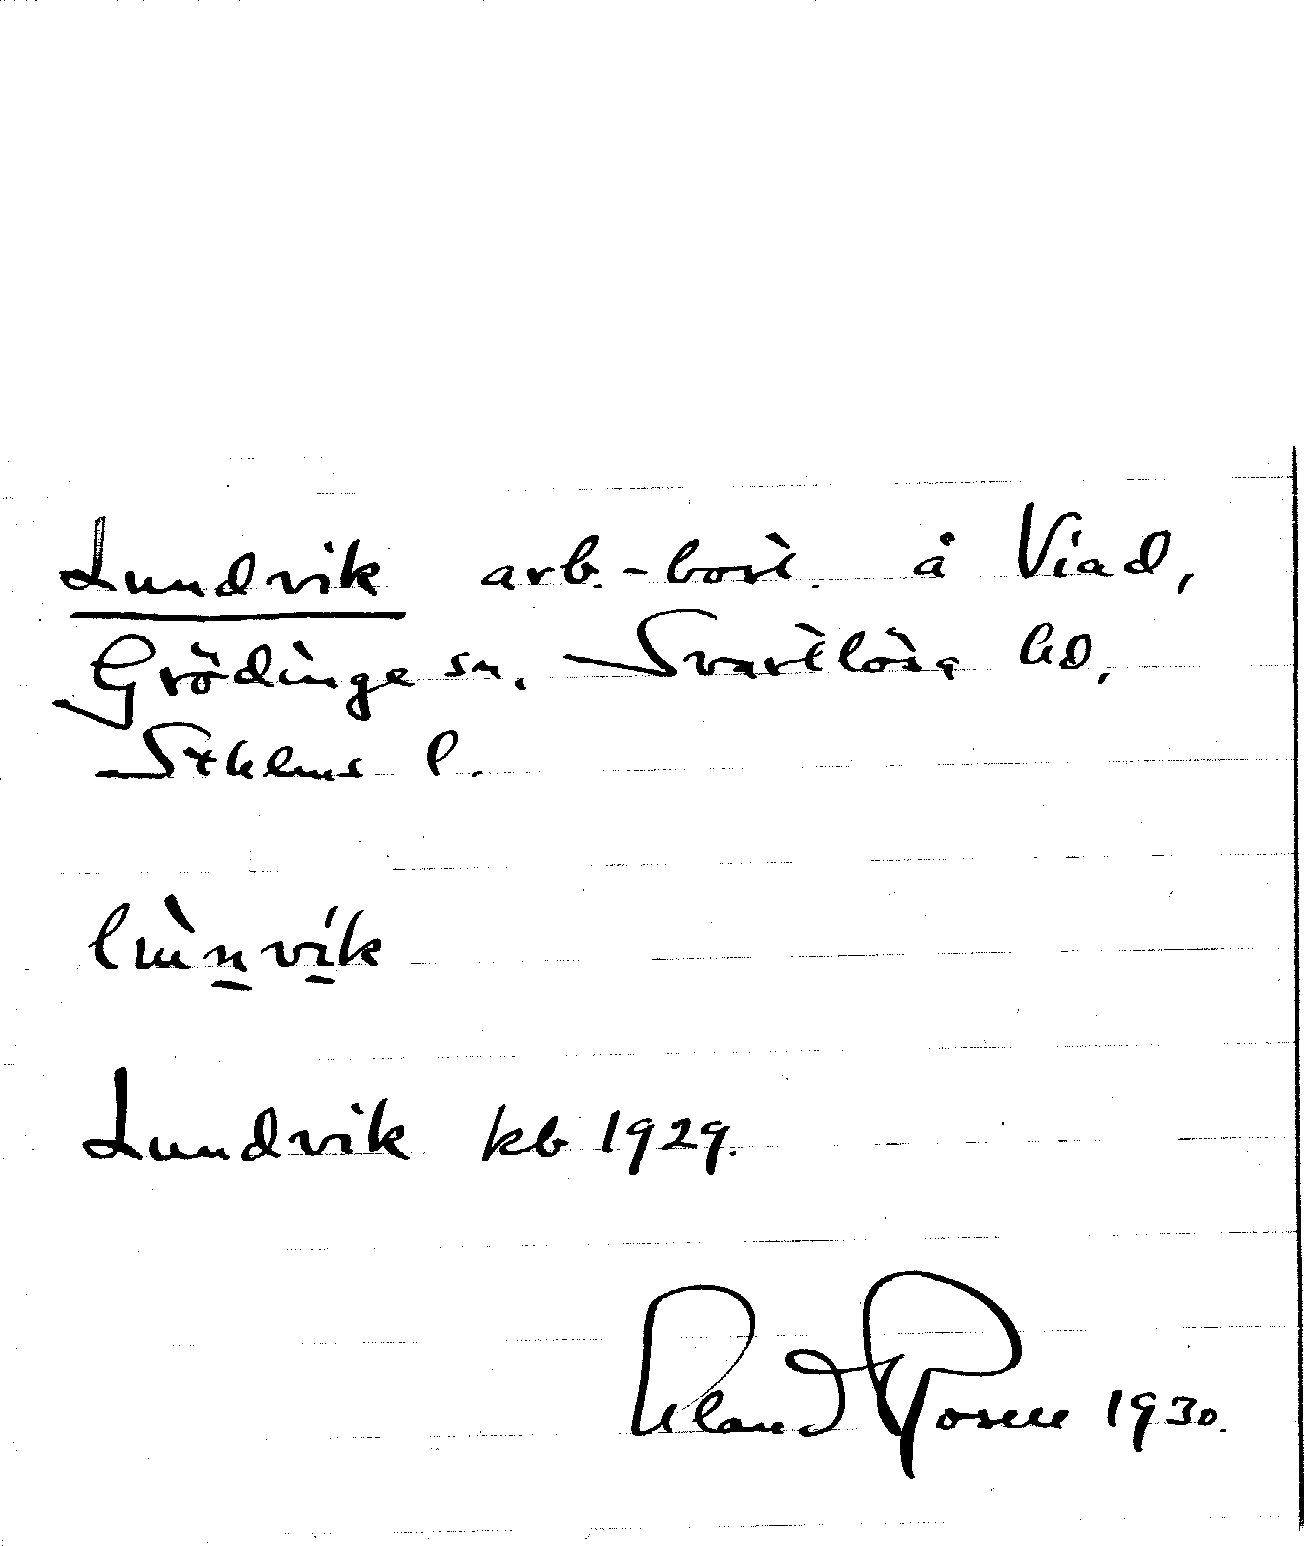 Lundvik arb.-bost. å Viad,
Grödinge sn. Svartlösa hd,
Sthlms l.
lùn̲vi̲k
Lundvik kb 1929.
Rosell 1930.